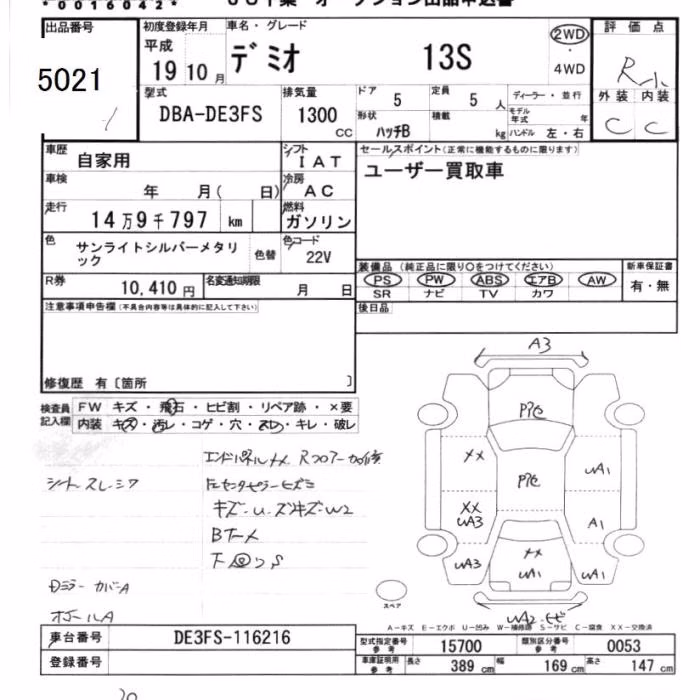 *00016042*
出品番号
5021
初度登録年月
平成
19 10 月
車名・グレード
デミオ 13S
2WD
4WD
評価点
R
外装 内装
C C
型式
DBA-DE3FS
排気量
1300 CC
ドア 5
定員 5 人
形状 ハッチB
積載 kg
ディーラー・並行
モデル年式 年
ハンドル 左・右
車歴 自家用
シフト IAT
車検 年 月( 日)
冷房 AC
走行 14万9千797 km
燃料 ガソリン
色 サンライトシルバーメタリック
色替
色コード 22V
R券 10,410 円
名変通知期限 月 日
セールスポイント(正常に機能するものに限ります)
ユーザー買取車
装備品 (純正品に限り○をつけてください)
PS PW ABS エアB AW
SR ナビ TV カワ
新車保証書
有・無
後日品
注意事項申告欄(不具合内容等は具体的に記入して下さい)
修復歴 有〔箇所 〕
検査員記入欄
FW キズ・飛石・ヒビ割・リペア跡・×要
内装 キズ・汚レ・コゲ・穴・スレ・キレ・破レ
シートスレ シワ
キズ・U・ズキズ・W2
Dミラーカバー A
A3
P化
XX
UA1
P化
XX
UA3
A1
UA3
XX
UA1
UA1
スペア
A-キズ E-エクボ U-凹み W-補修跡 S-サビ C-腐食 XX-交換済
車台番号 DE3FS-116216
登録番号
型式指定番号 参考 15700
類別区分番号 参考 0053
車庫証明用 参考 長さ 389 cm 幅 169 cm 高さ 147 cm
20